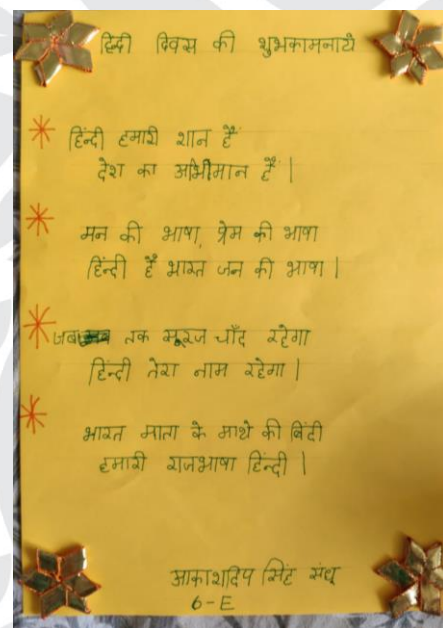 हिंदी दिवस की शुभकामनाये
हिन्दी हमारी शान हैं
देश का अभिमान हैं |
मन की भाषा, प्रेम की भाषा
हिंन्दी हैं भारत जन की भाषा |
जब तक सूरज चाँद रहेगा
हिन्दी तेरा नाम रहेगा |
भारत माता के माथे की बिंदी
हमारी राजभाषा हिन्दी |
आकाशदिप सिंह संधू
6-E